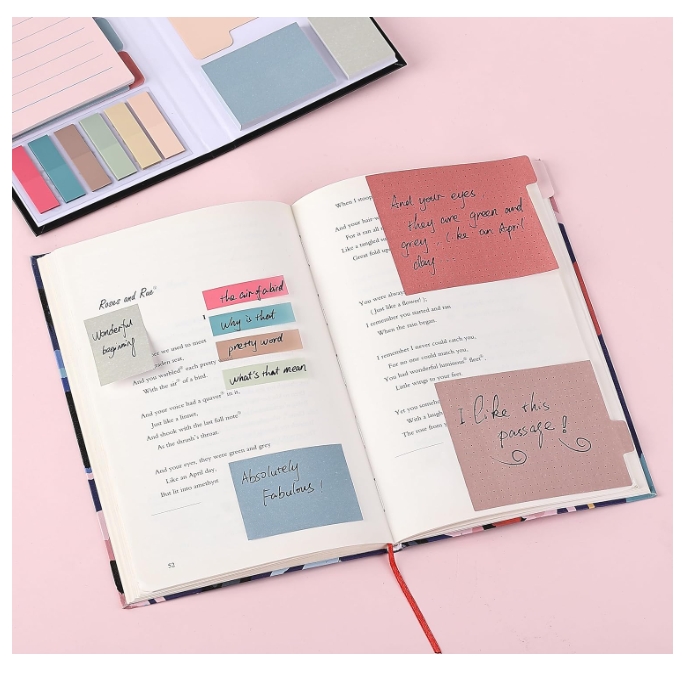 Roses and Rue
Wonderful
beginning
the air of a bird
why is that
pretty word
what's that mean
we used to meet
And you warbled each pretty
With the air of a bird.
And your voice had a quaver in it,
Just like a linnet,
And shook with the last full note
As the thrush's throat.
And your eyes, they were green and grey
Like an April day,
But lit into amethyst
Absolutely
Fabulous!
52
When I stoop
And your hair
For it ran all
Like a tangled
Great fold
And your eyes
they are green and
grey... Like an April
day
You were always
(Just like a flower!);
I remember you started and ran
When the rain began.
I remember I never could catch you,
For no one could match you,
You had wonderful luminous fleet
Little wings to your feet.
Yet you
With a laugh
The rose from
I like this
passage!